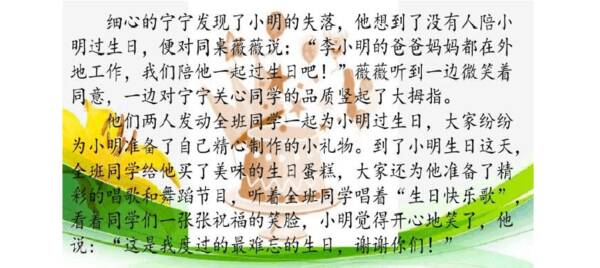 细心的宁宁发现了小明的失落，他想到了没有人陪小
明过生日，便对同桌薇薇说：“李小明的爸爸妈妈都在外
地工作，我们陪他一起过生日吧！”薇薇听到一边微笑着
同意，一边对宁宁关心同学的品质竖起了大拇指。
他们两人发动全班同学一起为小明过生日，大家纷纷
为小明准备了自己精心制作的小礼物。到了小明生日这天，
全班同学给他买了美味的生日蛋糕，大家还为他准备了精
彩的唱歌和舞蹈节目，听着全班同学唱着“生日快乐歌”，
看着同学们一张张祝福的笑脸，小明觉得开心地笑了，他
说：“这是我度过的最难忘的生日，谢谢你们！”